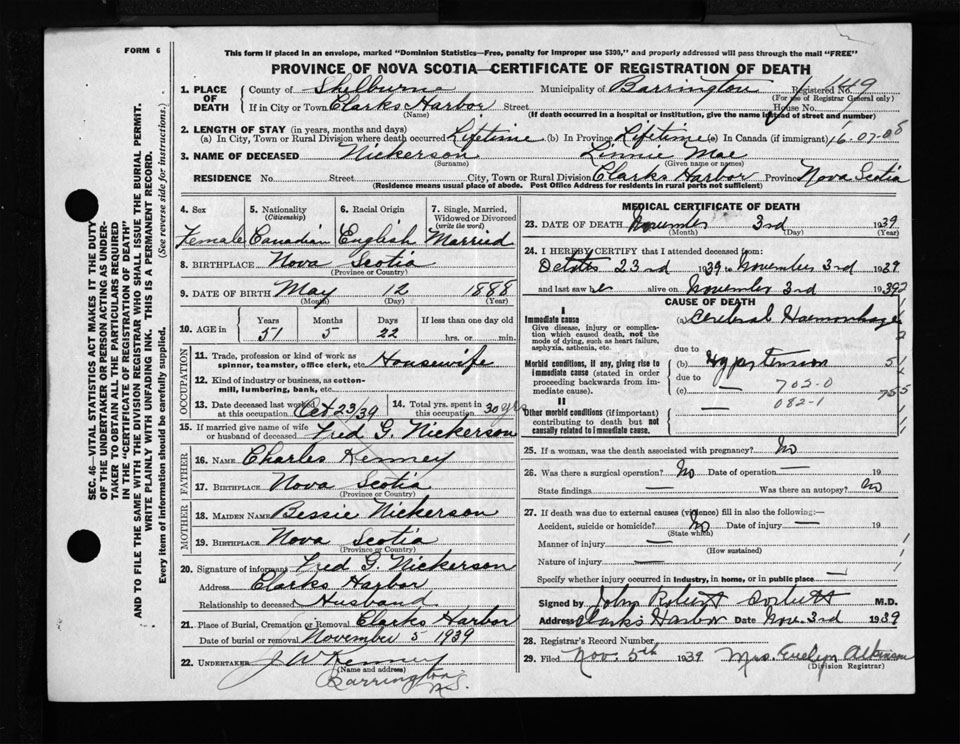 FORM 6
This form if placed in an envelope, marked "Dominion Statistics—Free, penalty for improper use $300," and properly addressed will pass through the mail "FREE"
PROVINCE OF NOVA SCOTIA—CERTIFICATE OF REGISTRATION OF DEATH
1. PLACE OF DEATH County of Shelburne Municipality of Barrington Registered No. 1449
(For use of Registrar General only)
If in City or Town Clarks Harbor Street House No.
(Name) (If death occurred in a hospital or institution, give the name instead of street and number)
2. LENGTH OF STAY (in years, months and days)
(a) In City, Town or Rural Division where death occurred Lifetime (b) In Province Lifetime (c) In Canada (if immigrant) 16-07-08
3. NAME OF DECEASED Nickerson Linnie Mae
(Surname) (Given name or names)
RESIDENCE No. Street City, Town or Rural Division Clarks Harbor Province Nova Scotia
(Residence means usual place of abode. Post Office Address for residents in rural parts not sufficient)
4. Sex 5. Nationality (Citizenship) 6. Racial Origin 7. Single, Married, Widowed or Divorced (write the word)
Female Canadian English Married
8. BIRTHPLACE Nova Scotia
(Province or Country)
9. DATE OF BIRTH May 12 1888
(Month) (Day) (Year)
10. AGE in Years Months Days If less than one day old
51 5 22 hrs. or min.
OCCUPATION
11. Trade, profession or kind of work as spinner, teamster, office clerk, etc. Housewife
12. Kind of industry or business, as cotton-mill, lumbering, bank, etc.
13. Date deceased last worked at this occupation Oct 23/39 14. Total yrs. spent in this occupation 30 yrs
15. If married give name of wife or husband of deceased Fred G. Nickerson
FATHER
16. NAME Charles Kenney
17. BIRTHPLACE Nova Scotia
(Province or Country)
MOTHER
18. MAIDEN NAME Bessie Nickerson
19. BIRTHPLACE Nova Scotia
(Province or Country)
20. Signature of informant Fred G. Nickerson
Address Clarks Harbor
Relationship to deceased Husband
21. Place of Burial, Cremation or Removal Clarks Harbor
Date of burial or removal November 5 1939
22. UNDERTAKER J W Kenney
(Name and address)
Barrington N.S.
MEDICAL CERTIFICATE OF DEATH
23. DATE OF DEATH November 3rd 1939
(Month) (Day) (Year)
24. I HEREBY CERTIFY that I attended deceased from:
October 23rd 1939 to November 3rd 1939
and last saw her alive on November 3rd 1939
CAUSE OF DEATH
I
Immediate cause (a) Cerebral Haemorrhage
Give disease, injury or complication which caused death, not the mode of dying, such as heart failure, asphyxia, asthenia, etc.
due to
Morbid conditions, if any, giving rise to immediate cause (stated in order proceeding backwards from immediate cause). (b) Hypertension
due to
(c) 702-0
082-1
755
II
Other morbid conditions (if important) contributing to death but not causally related to immediate cause.
25. If a woman, was the death associated with pregnancy? No
26. Was there a surgical operation? No Date of operation — 19
State findings — Was there an autopsy? No
27. If death was due to external causes (violence) fill in also the following:—
Accident, suicide or homicide? No Date of injury — 19
(State which)
Manner of injury —
(How sustained)
Nature of injury —
Specify whether injury occurred in industry, in home, or in public place —
Signed by John Robert Corbett M.D.
Address Clarks Harbor Date Nov. 3rd 1939
28. Registrar's Record Number
29. Filed Nov. 5th 1939 Mrs. Evelyn Atkinson
(Division Registrar)
SEC. 46—VITAL STATISTICS ACT MAKES IT THE DUTY
OF THE UNDERTAKER OR PERSON ACTING AS UNDER-
TAKER TO OBTAIN ALL THE PARTICULARS REQUIRED
IN THE "CERTIFICATE OF REGISTRATION OF DEATH"
AND TO FILE THE SAME WITH THE DIVISION REGISTRAR WHO SHALL ISSUE THE BURIAL PERMIT.
WRITE PLAINLY WITH UNFADING INK. THIS IS A PERMANENT RECORD.
Every item of information should be carefully supplied. (See reverse side for instructions.)